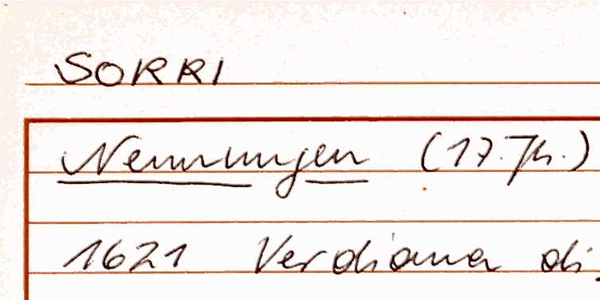 SORRI
Nennungen (17. Jh.)
1621 Verdiana di